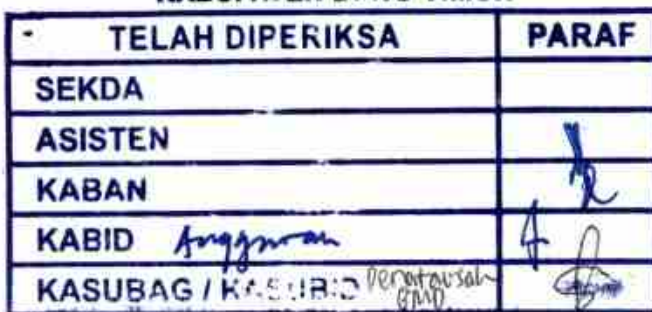 TELAH DIPERIKSA PARAF
SEKDA
ASISTEN
KABAN
KABID Anggaran
KASUBAG / KASUBID Penatausah
BMD